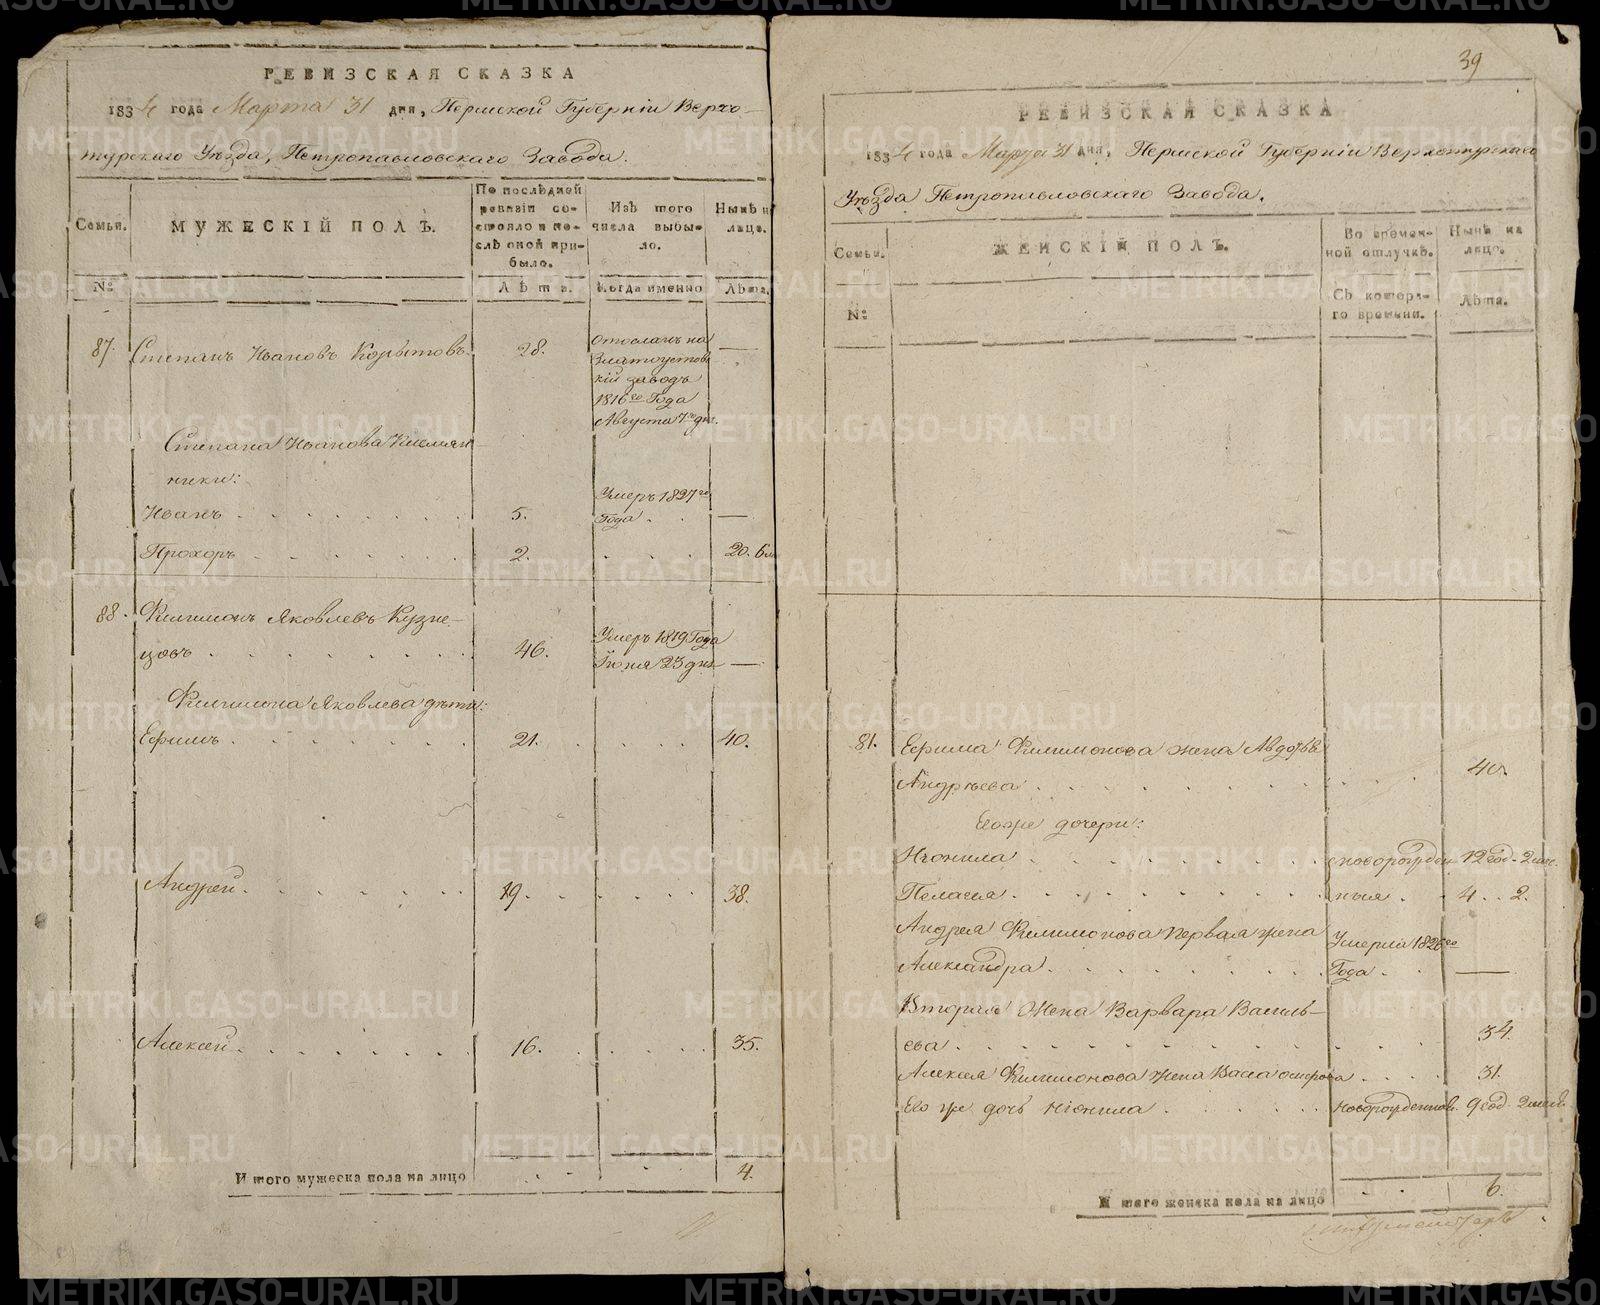 РЕВИЗСКАЯ СКАЗКА
1834 года Марта 31 дня, Пермской Губерніи Верхо-
турскаго Уѣзда, Петропавловскаго Завода.
Семьи.
МУЖЕСКІЙ ПОЛЪ.
По послѣдней
ревизіи со-
стояло и по-
слѣ оной при-
было.
Изъ того
числа выбы-
ло.
Нынѣ н
лицо.
№
Лѣта.
Когда именно
Лѣта.
87. Степанъ Ивановъ Корытовъ. 28.
Отосланъ на
Златоустов
кій заводъ
1816го Года
Августа 7го дня.
—
Степана Иванова племян-
ники:
Иванъ 5.
Умеръ 1827го
Года. —
Прохоръ 2. 20.
88. Филимонъ Яковлевъ Кузне-
цовъ 46.
Умеръ 1819 Года
Іюня 23 дня —
Филимона Яковлева дѣти:
Ефимъ 21. 40.
Андрей 19. 38.
Алексей 16. 35.
Итого мужеска пола на лицо 4.
39
РЕВИЗСКАЯ СКАЗКА
1834 года Марта 31 дня, Пермской Губерніи Верхотурскаго
Уѣзда Петропавловскаго Завода.
Семьи.
ЖЕНСКІЙ ПОЛЪ.
Во времен-
ной отлучкѣ.
Нынѣ на
лицо.
№
Съ котора-
го времени.
Лѣта.
81. Ефима Филимонова жена Авдотья
Андрѣева 40.
Его же дочери:
Неонила новорожден 12 год. 2 мес.
Пелагея ныя 4 . . 2.
Андрея Филимонова первая жена
Александра.
Умерла 1826го
Года —
Вторая Жена Варвара Василь-
ева 34.
Алексея Филимонова жена Васса 31.
Его же дочь Неонила новорожденная. 9 год. 2 мес.
Итого женска пола на лицо 6.
METRIKI.GASO-URAL.RU